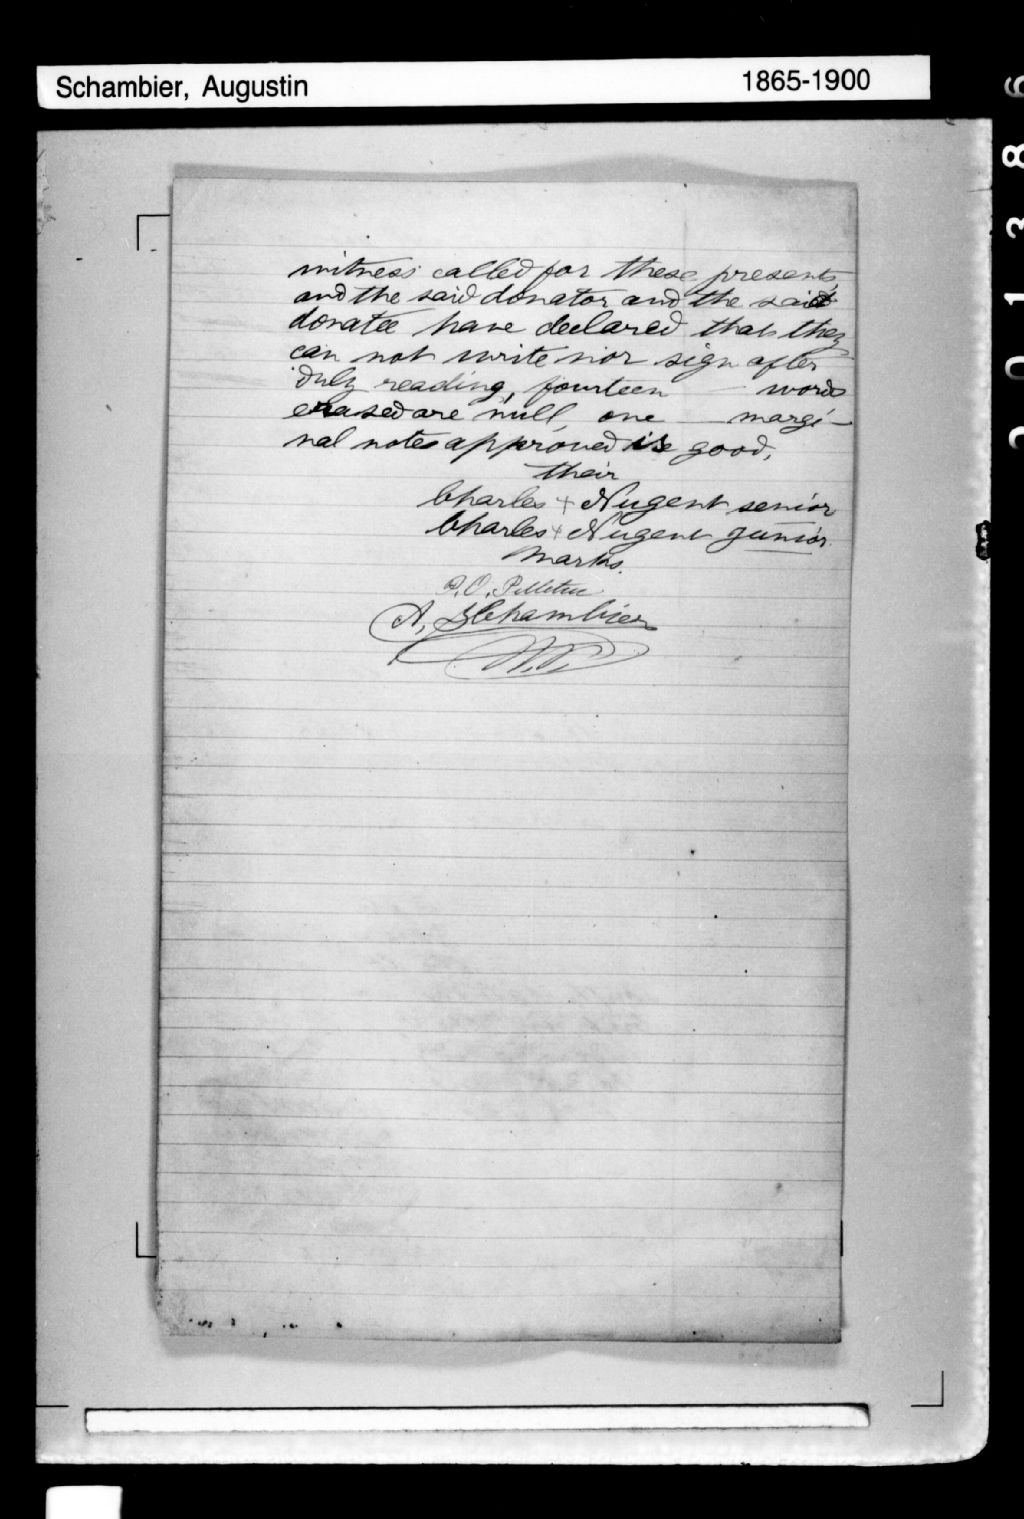 Schambier, Augustin 1865-1900
witness called for these presents,
and the said donator and the said
donatee have declared that they
can not write nor sign after
duly reading, fourteen words
erased are null, one margi-
nal notes approved is good,
their
Charles + Nugent senior
Charles + Nugent junior
marks.
P. O. Pelletier
A. Schambier
N.P.
2 0 1 3 8 6